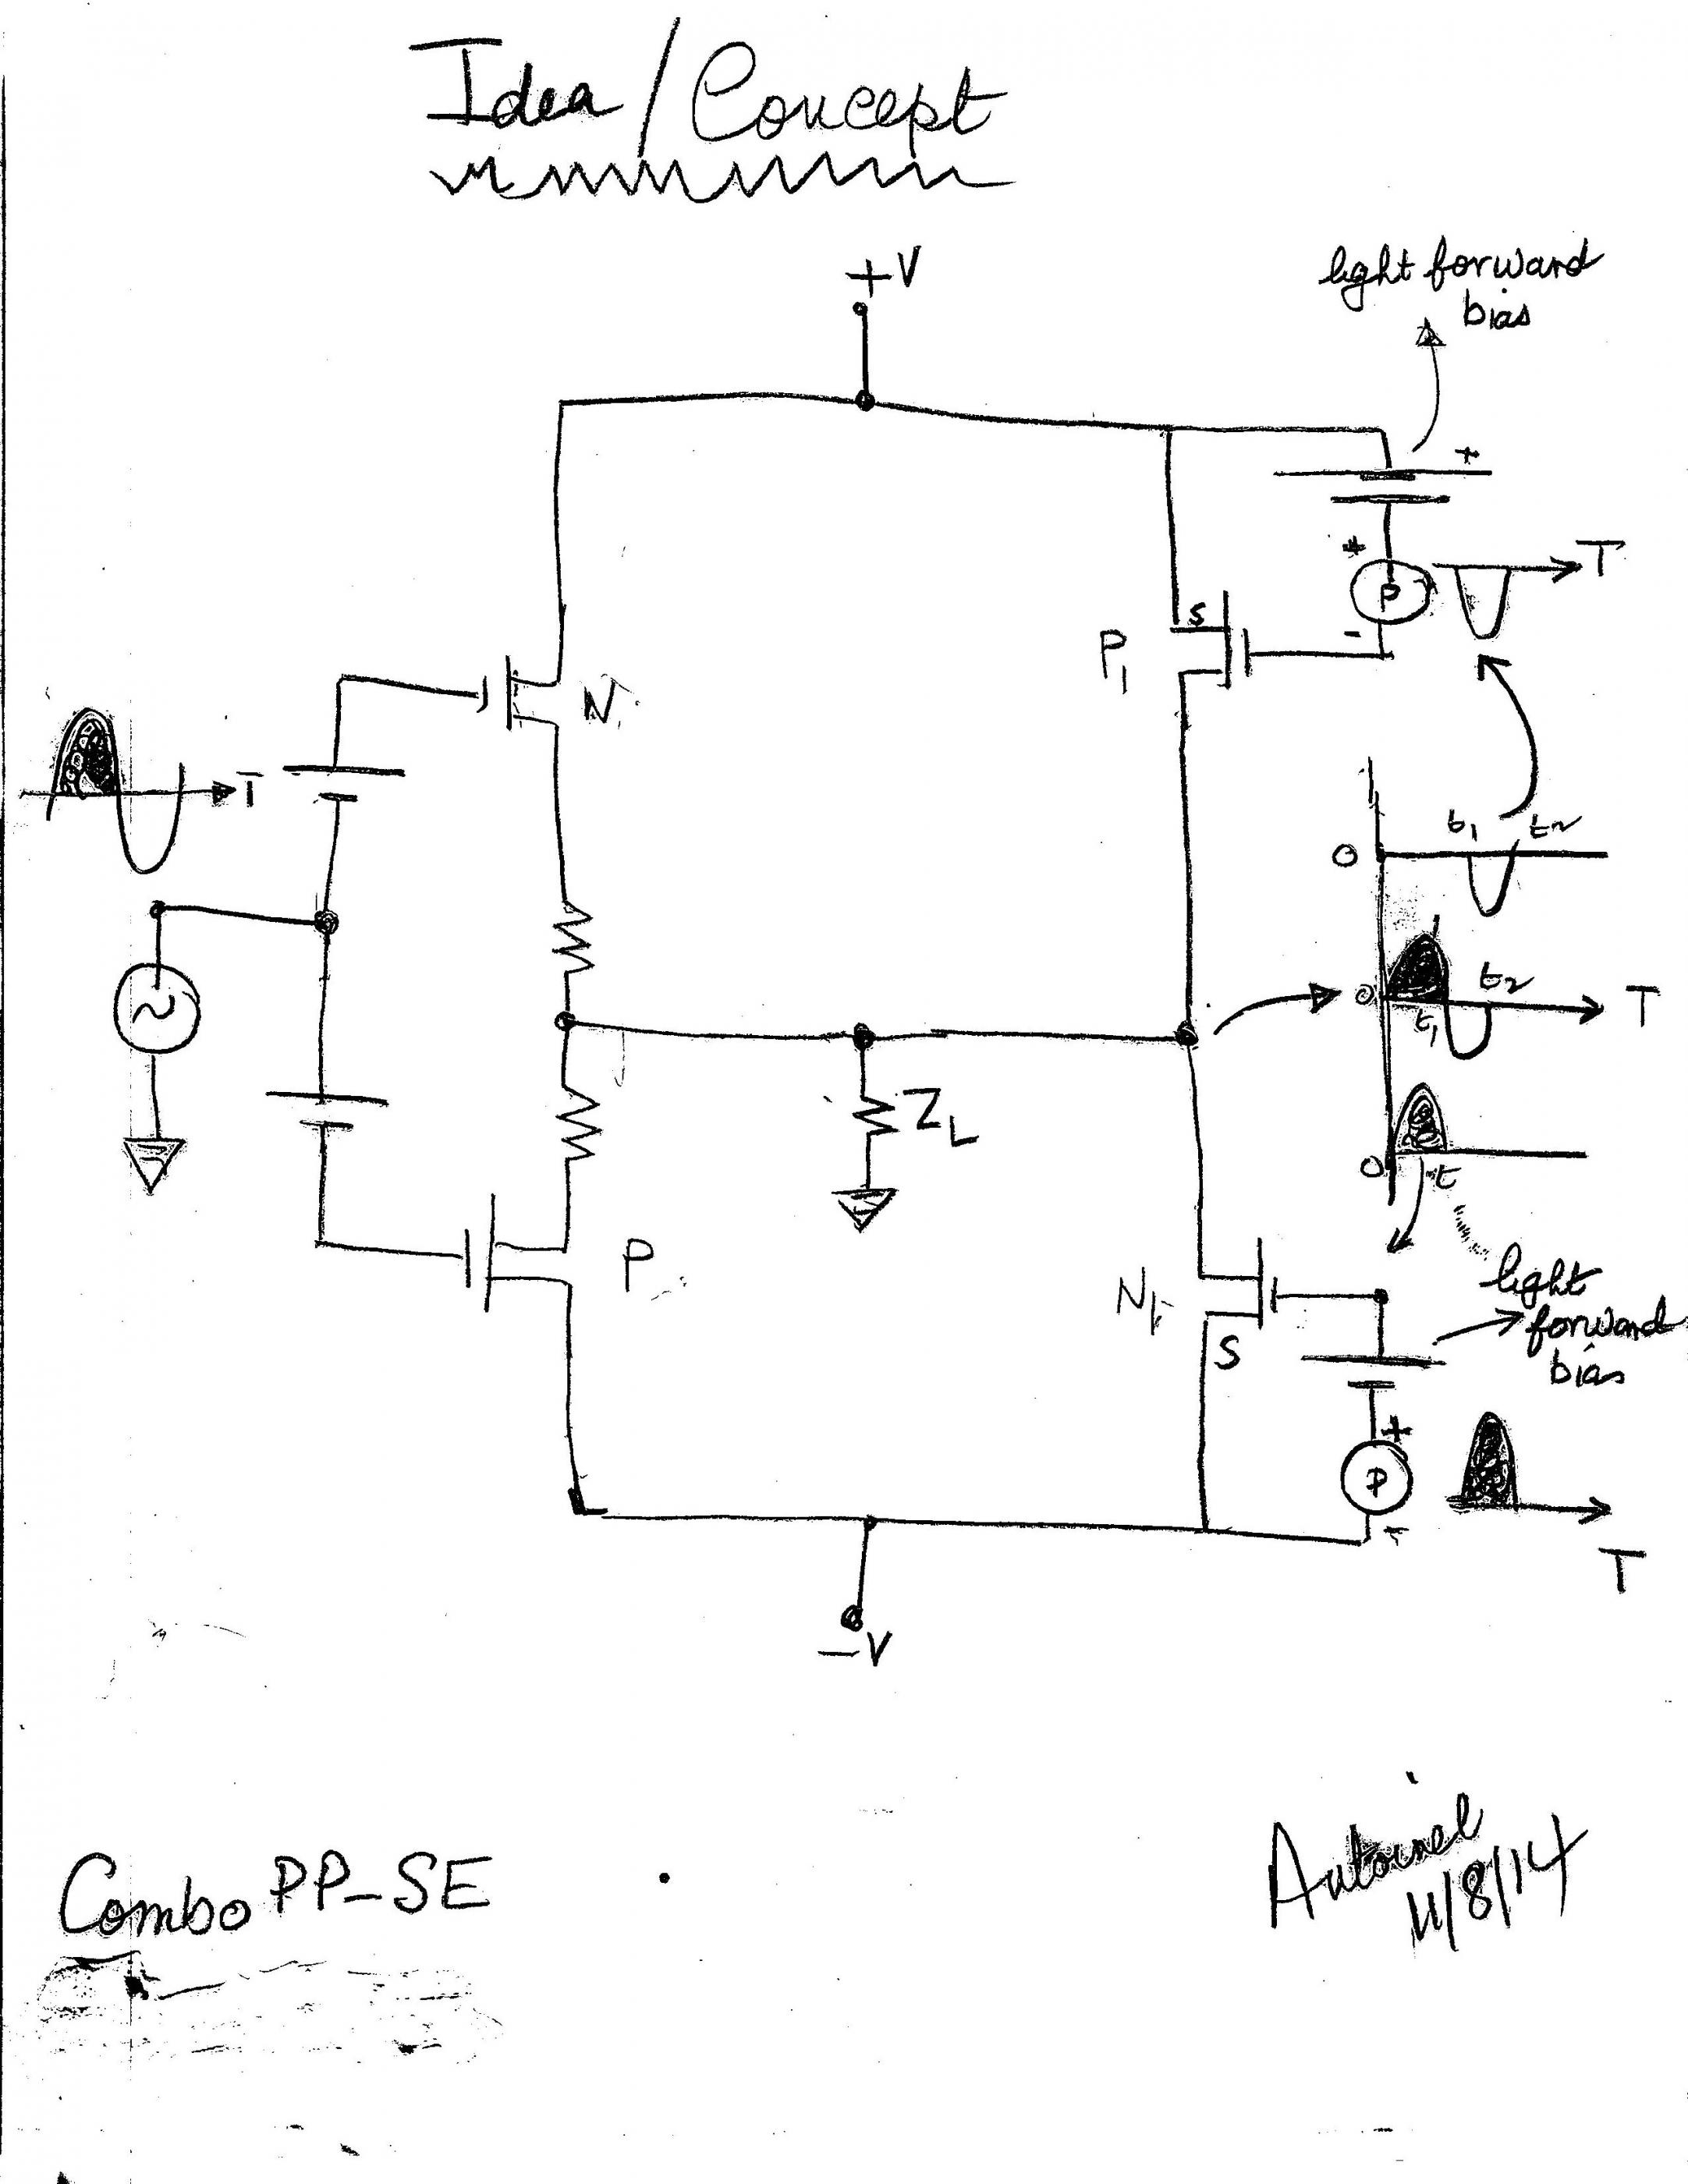 Idea / Concept
+V
light forward
bias
+
+
P
T
S
P1
-
N
T
t1
t2
0
0
t2
T
t1
ZL
0
t
P
light
forward
bias
S
+
P
-
T
-V
Combo PP-SE
11/8/14